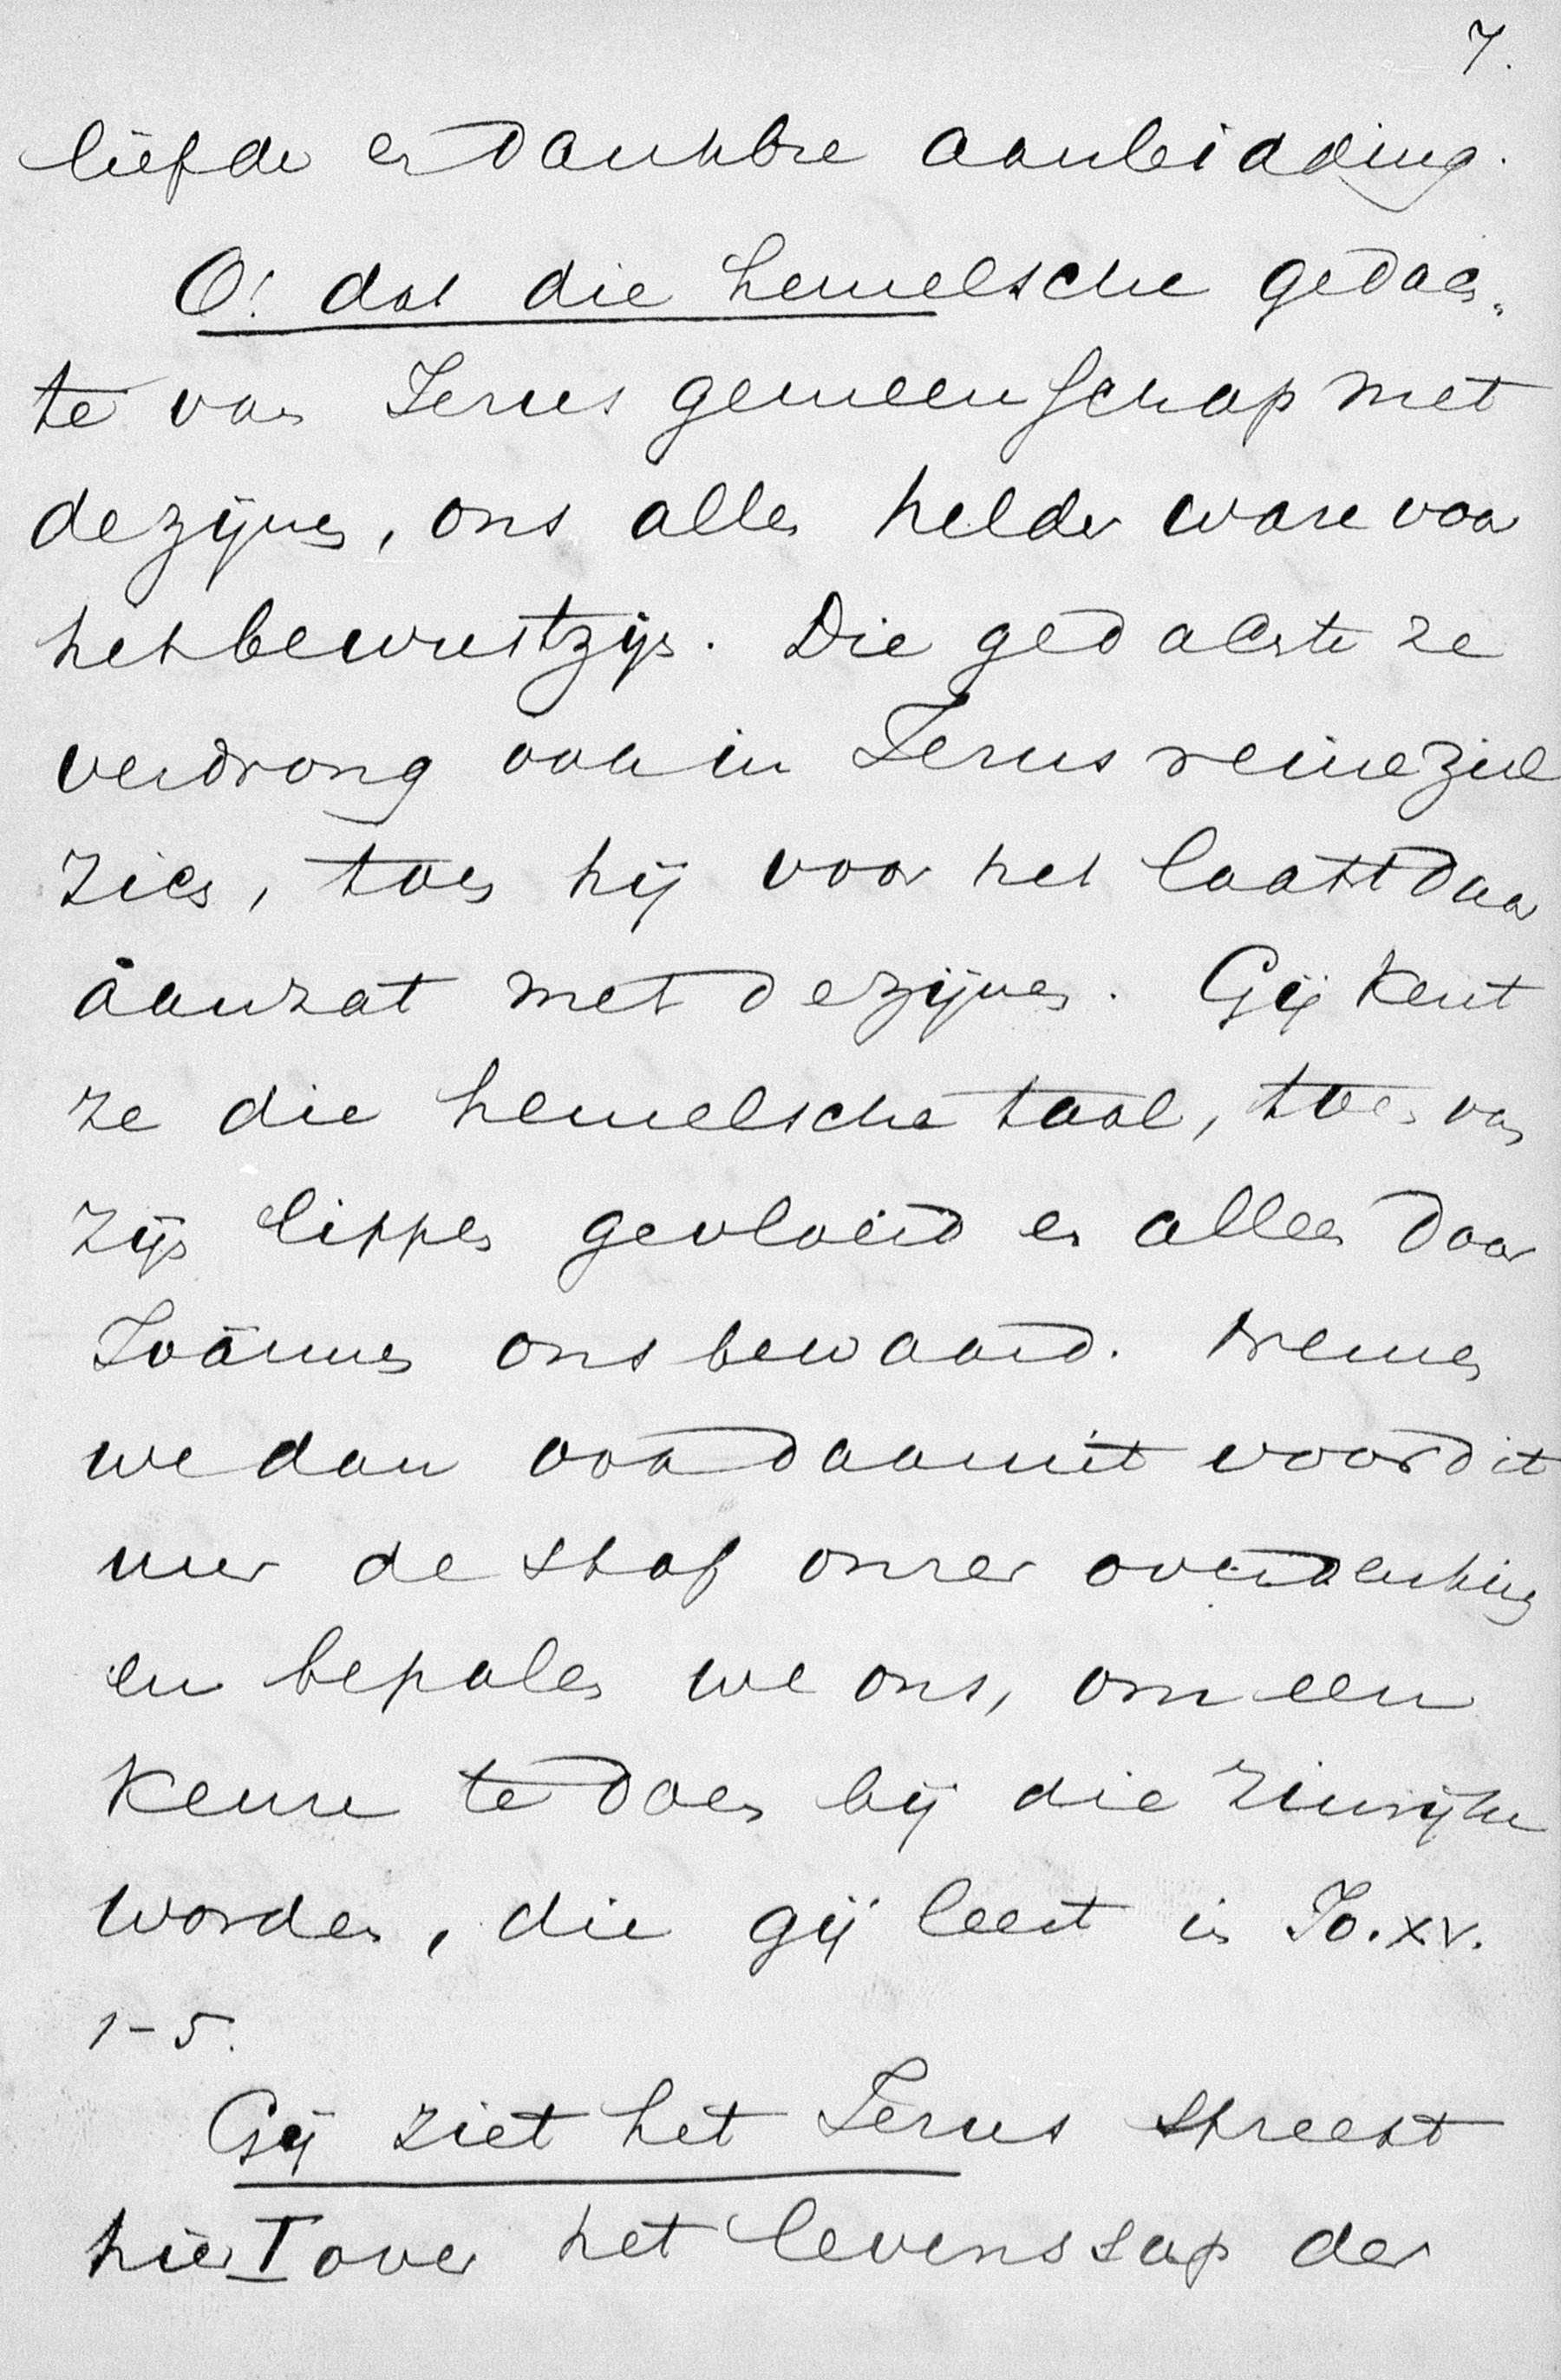 7.
liefde en dankbre aanbidding.
O! dat die hemelsche gedach„
te van Jezus gemeenschap met
de zijnen, ons allen helder ware voor
het bewustzijn. Die gedachte ze
verdrong ook in Jezus reine ziel
zich, toen hij voor het laatst daar
aanzat met de zijnen. Gij kent
ze die hemelsche taal, toen van
zijn lippen gevloeid en alleen door
Joännes ons bewaard. Nemen
we dan ook daaruit voor dit
uur de stof onzer overdenking
en bepalen we ons, om een
keuze te doen bij die zinrijke
woorden, die gij leest in Jo. XV.
1-5.
Gij ziet het Jezus spreekt
hier I over het levenssap der